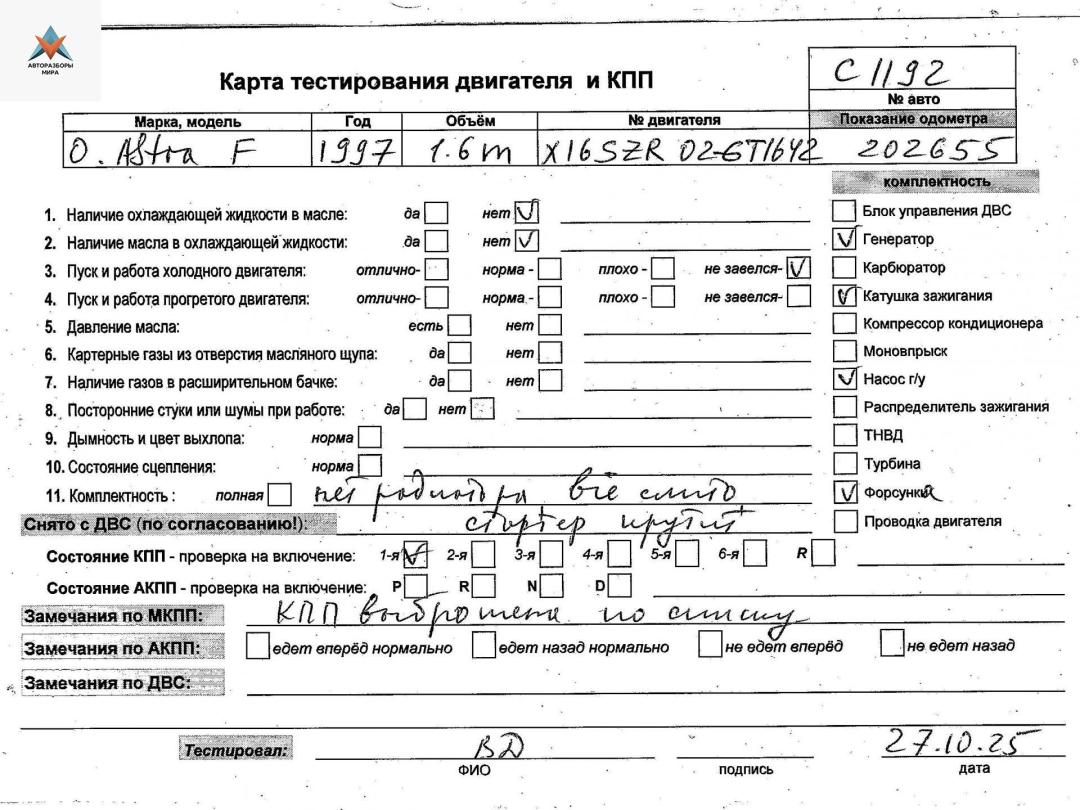 АВТОРАЗБОРЫ
МИРА
Карта тестирования двигателя и КПП
C 1192
№ авто
Марка, модель Год Объём № двигателя Показание одометра
O. Astra F 1997 1.6 m X16SZR 02-6T1642 202655
комплектность
1. Наличие охлаждающей жидкости в масле: да нет
Блок управления ДВС
2. Наличие масла в охлаждающей жидкости: да нет
Генератор
3. Пуск и работа холодного двигателя: отлично- норма - плохо - не завелся-
Карбюратор
4. Пуск и работа прогретого двигателя: отлично- норма - плохо - не завелся-
Катушка зажигания
5. Давление масла: есть нет
Компрессор кондиционера
6. Картерные газы из отверстия масляного щупа: да нет
Моновпрыск
7. Наличие газов в расширительном бачке: да нет
Насос г/у
8. Посторонние стуки или шумы при работе: да нет
Распределитель зажигания
9. Дымность и цвет выхлопа: норма
ТНВД
10. Состояние сцепления: норма
Турбина
11. Комплектность : полная нет радиатора все слито
Форсунки
Снято с ДВС (по согласованию!): стартер крутит
Проводка двигателя
Состояние КПП - проверка на включение: 1-я 2-я 3-я 4-я 5-я 6-я R
Состояние АКПП - проверка на включение: P R N D
Замечания по МКПП: КПП выброшена по списку
Замечания по АКПП: едет вперёд нормально едет назад нормально не едет вперёд не едет назад
Замечания по ДВС:
Тестировал: ВД 27.10.25
ФИО подпись дата